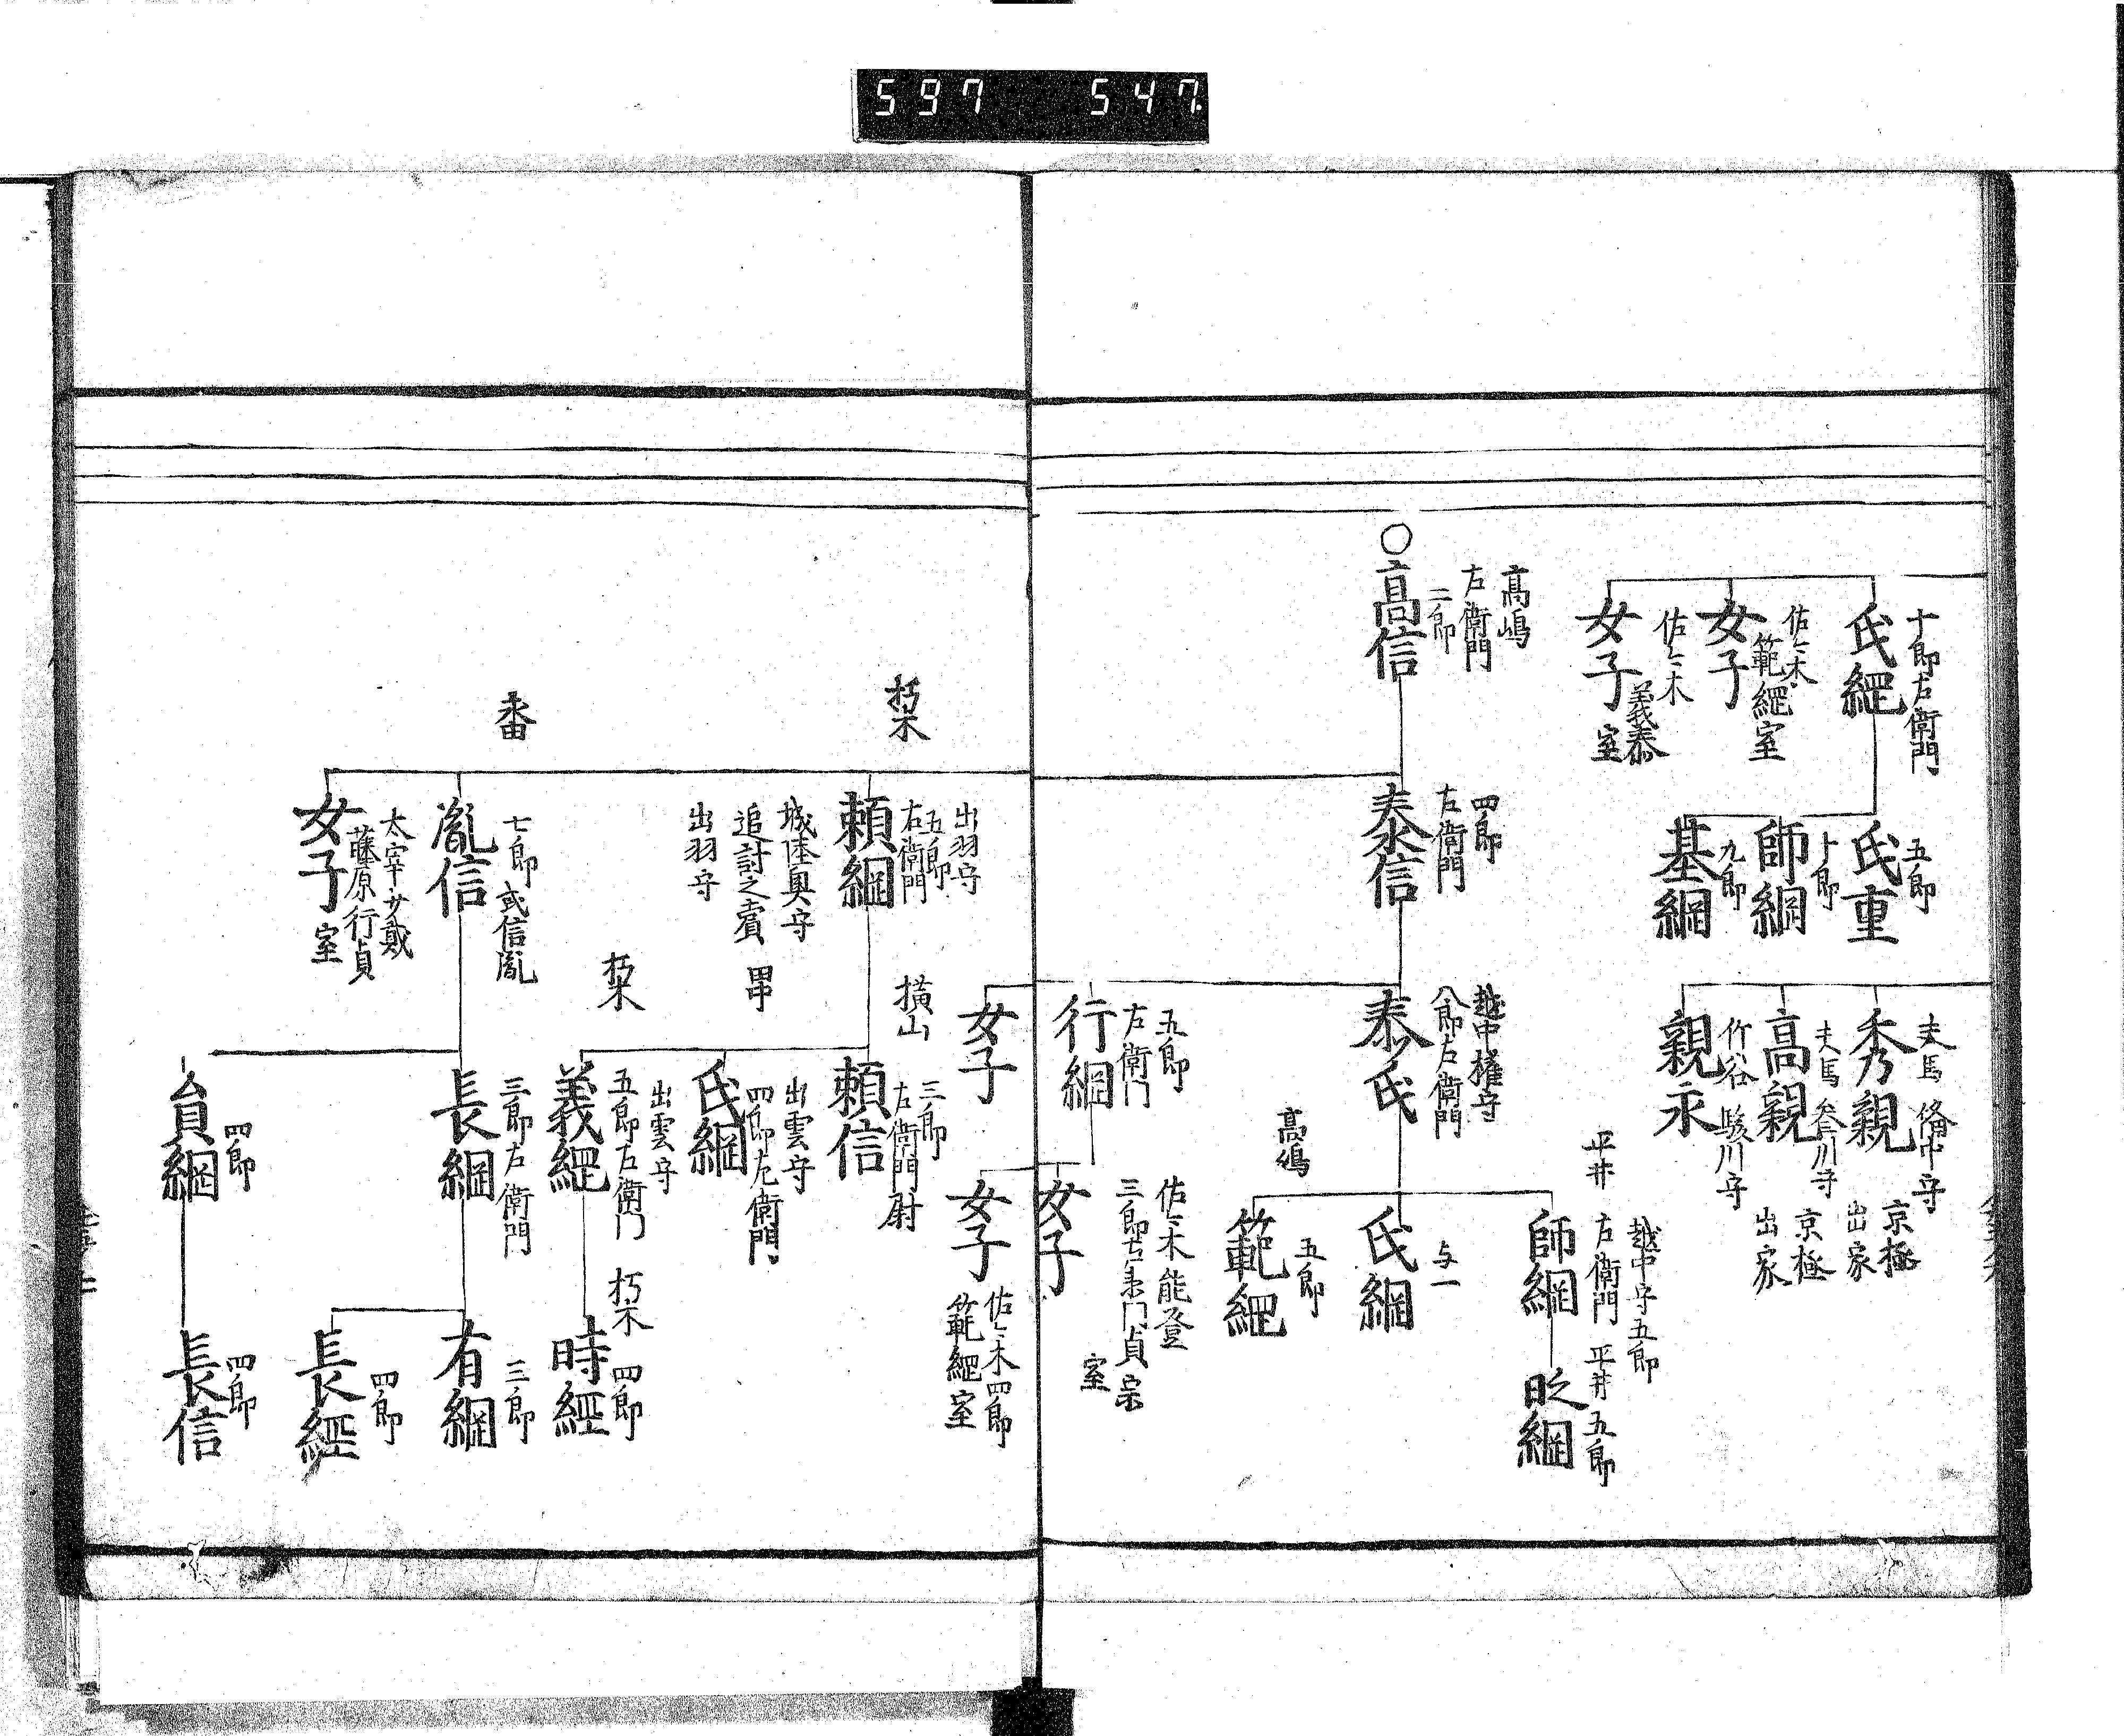 597 547
十郎左衛門
氏綱
佐々木
範綱室
女子
佐々木
義泰
室
女子
五郎
氏重
卜郎
師綱
九郎
基綱
秀親
京極
出家
高親
京極
出家
竹谷 駿川守
親永
高嶋
左衛門
二郎
○高信
四郎
左衛門
泰信
越中権守
八郎左衛門
泰氏
平井
越中守五郎
左衛門 平井五郎
師綱
昵綱
与一
氏綱
高嶋
五郎
範綱
五郎
左衛門
行綱
佐々木能登
三郎左衛門貞宗
室
女子
女子
佐々木四郎
範綱室
女子
朽木
出羽守
五郎
右衛門
頼綱
城陸奥守
追討之賞
出羽守
横山
三郎
左衛門尉
頼信
田中
出雲守
四郎左衛門
氏綱
朽木
出雲守
五郎左衛門
義綱
朽木
四郎
時経
番
七郎 或信胤
胤信
三郎左衛門
長綱
三郎
有綱
四郎
長経
四郎
員綱
四郎
長信
太宰少貳
藤原行貞
室
女子